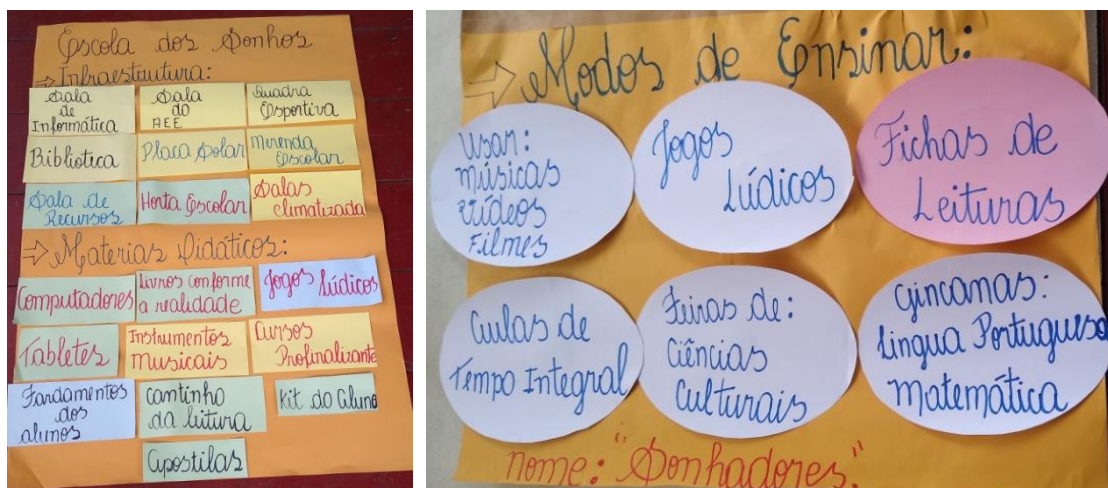 Escola dos Sonhos
→ Infraestrutura:
Sala
de
Informática
Sala
do
AEE
Quadra
Esportiva
Bibliotica
Placa Solar
Merenda
Escolar
Sala de
Recursos
Horta Escolar
Salas
climatizada
→ Materias Didáticos:
Computadores
Livros conforme
a realidade
Jogos Lúdicos
Tabletes
Instrumentos
Musicais
Cursos
Profinalizante
Fardamentos
dos
alunos
cantinho
da leitura
Kit do Aluno
Apostilas
→ Modos de Ensinar:
Usar:
músicas
vídeos
Filmes
Jogos
Lúdicos
Fichas de
Leituras
Aulas de
Tempo Integral
Feiras de:
Ciências
Culturais
Gincanas:
Língua Portuguesa
Matemática
nome: "Sonhadores."